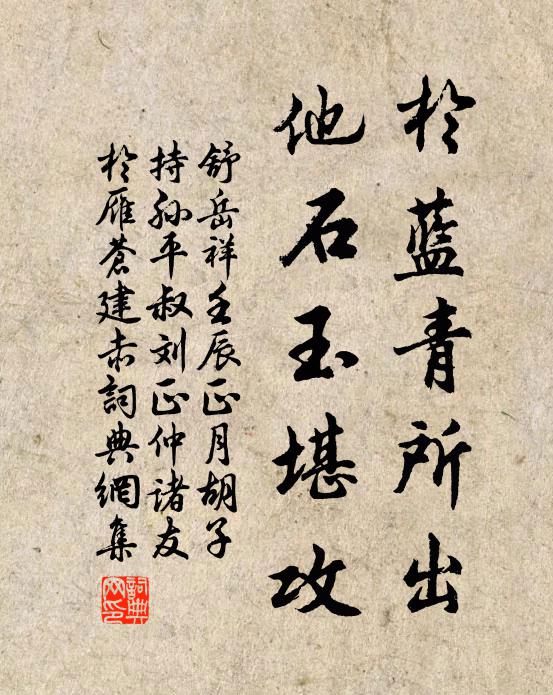 於蓝青所出
他石玉堪攻
舒岳祥壬辰正月胡子
持孙平叔刘正仲诸友
於雁苍建赤詞典網集
詞典网印